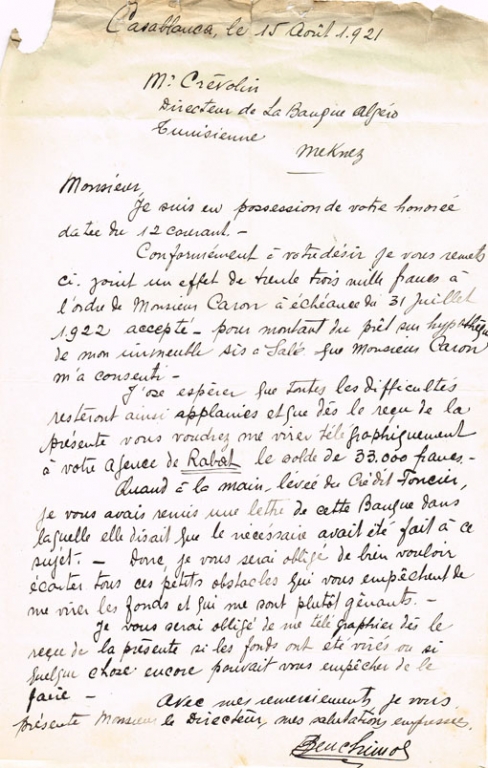 Casablanca, le 15 Août 1921
Mr Crévolin
Directeur de La Banque Algéro
Tunisienne
Meknez
Monsieur,
Je suis en possession de votre honorée
datée du 12 courant. -
Conformément à votre désir je vous remets
ci-joint un effet de trente trois mille francs à
l'ordre de Monsieur Caron à échéance du 31 Juillet
1922 accepté - pour montant du prêt sur hypothèque
de mon immeuble sis à Salé que Monsieur Caron
m'a consenti -
J'ose espérer que toutes les difficultés
resteront ainsi applanies et que dès le reçu de la
présente vous voudrez me virer télégraphiquement
à votre agence de Rabat le solde de 33.000 francs. -
Quand à la main levée du Crédit Foncier,
je vous avais remis une lettre de cette Banque dans
laquelle elle disait que le nécessaire avait été fait à ce
sujet. - Donc, je vous serai obligé de bien vouloir
écarter tous ces petits obstacles qui vous empêchent de
me virer les fonds et qui me sont plutôt gênants. -
Je vous serai obligé de me télégraphier dès le
reçu de la présente si les fonds ont été virés ou si
quelque chose encore pouvait vous empêcher de le
faire -
Avec mes remerciements, je vous
présente Monsieur le Directeur, mes salutations empressées.
Benchimol